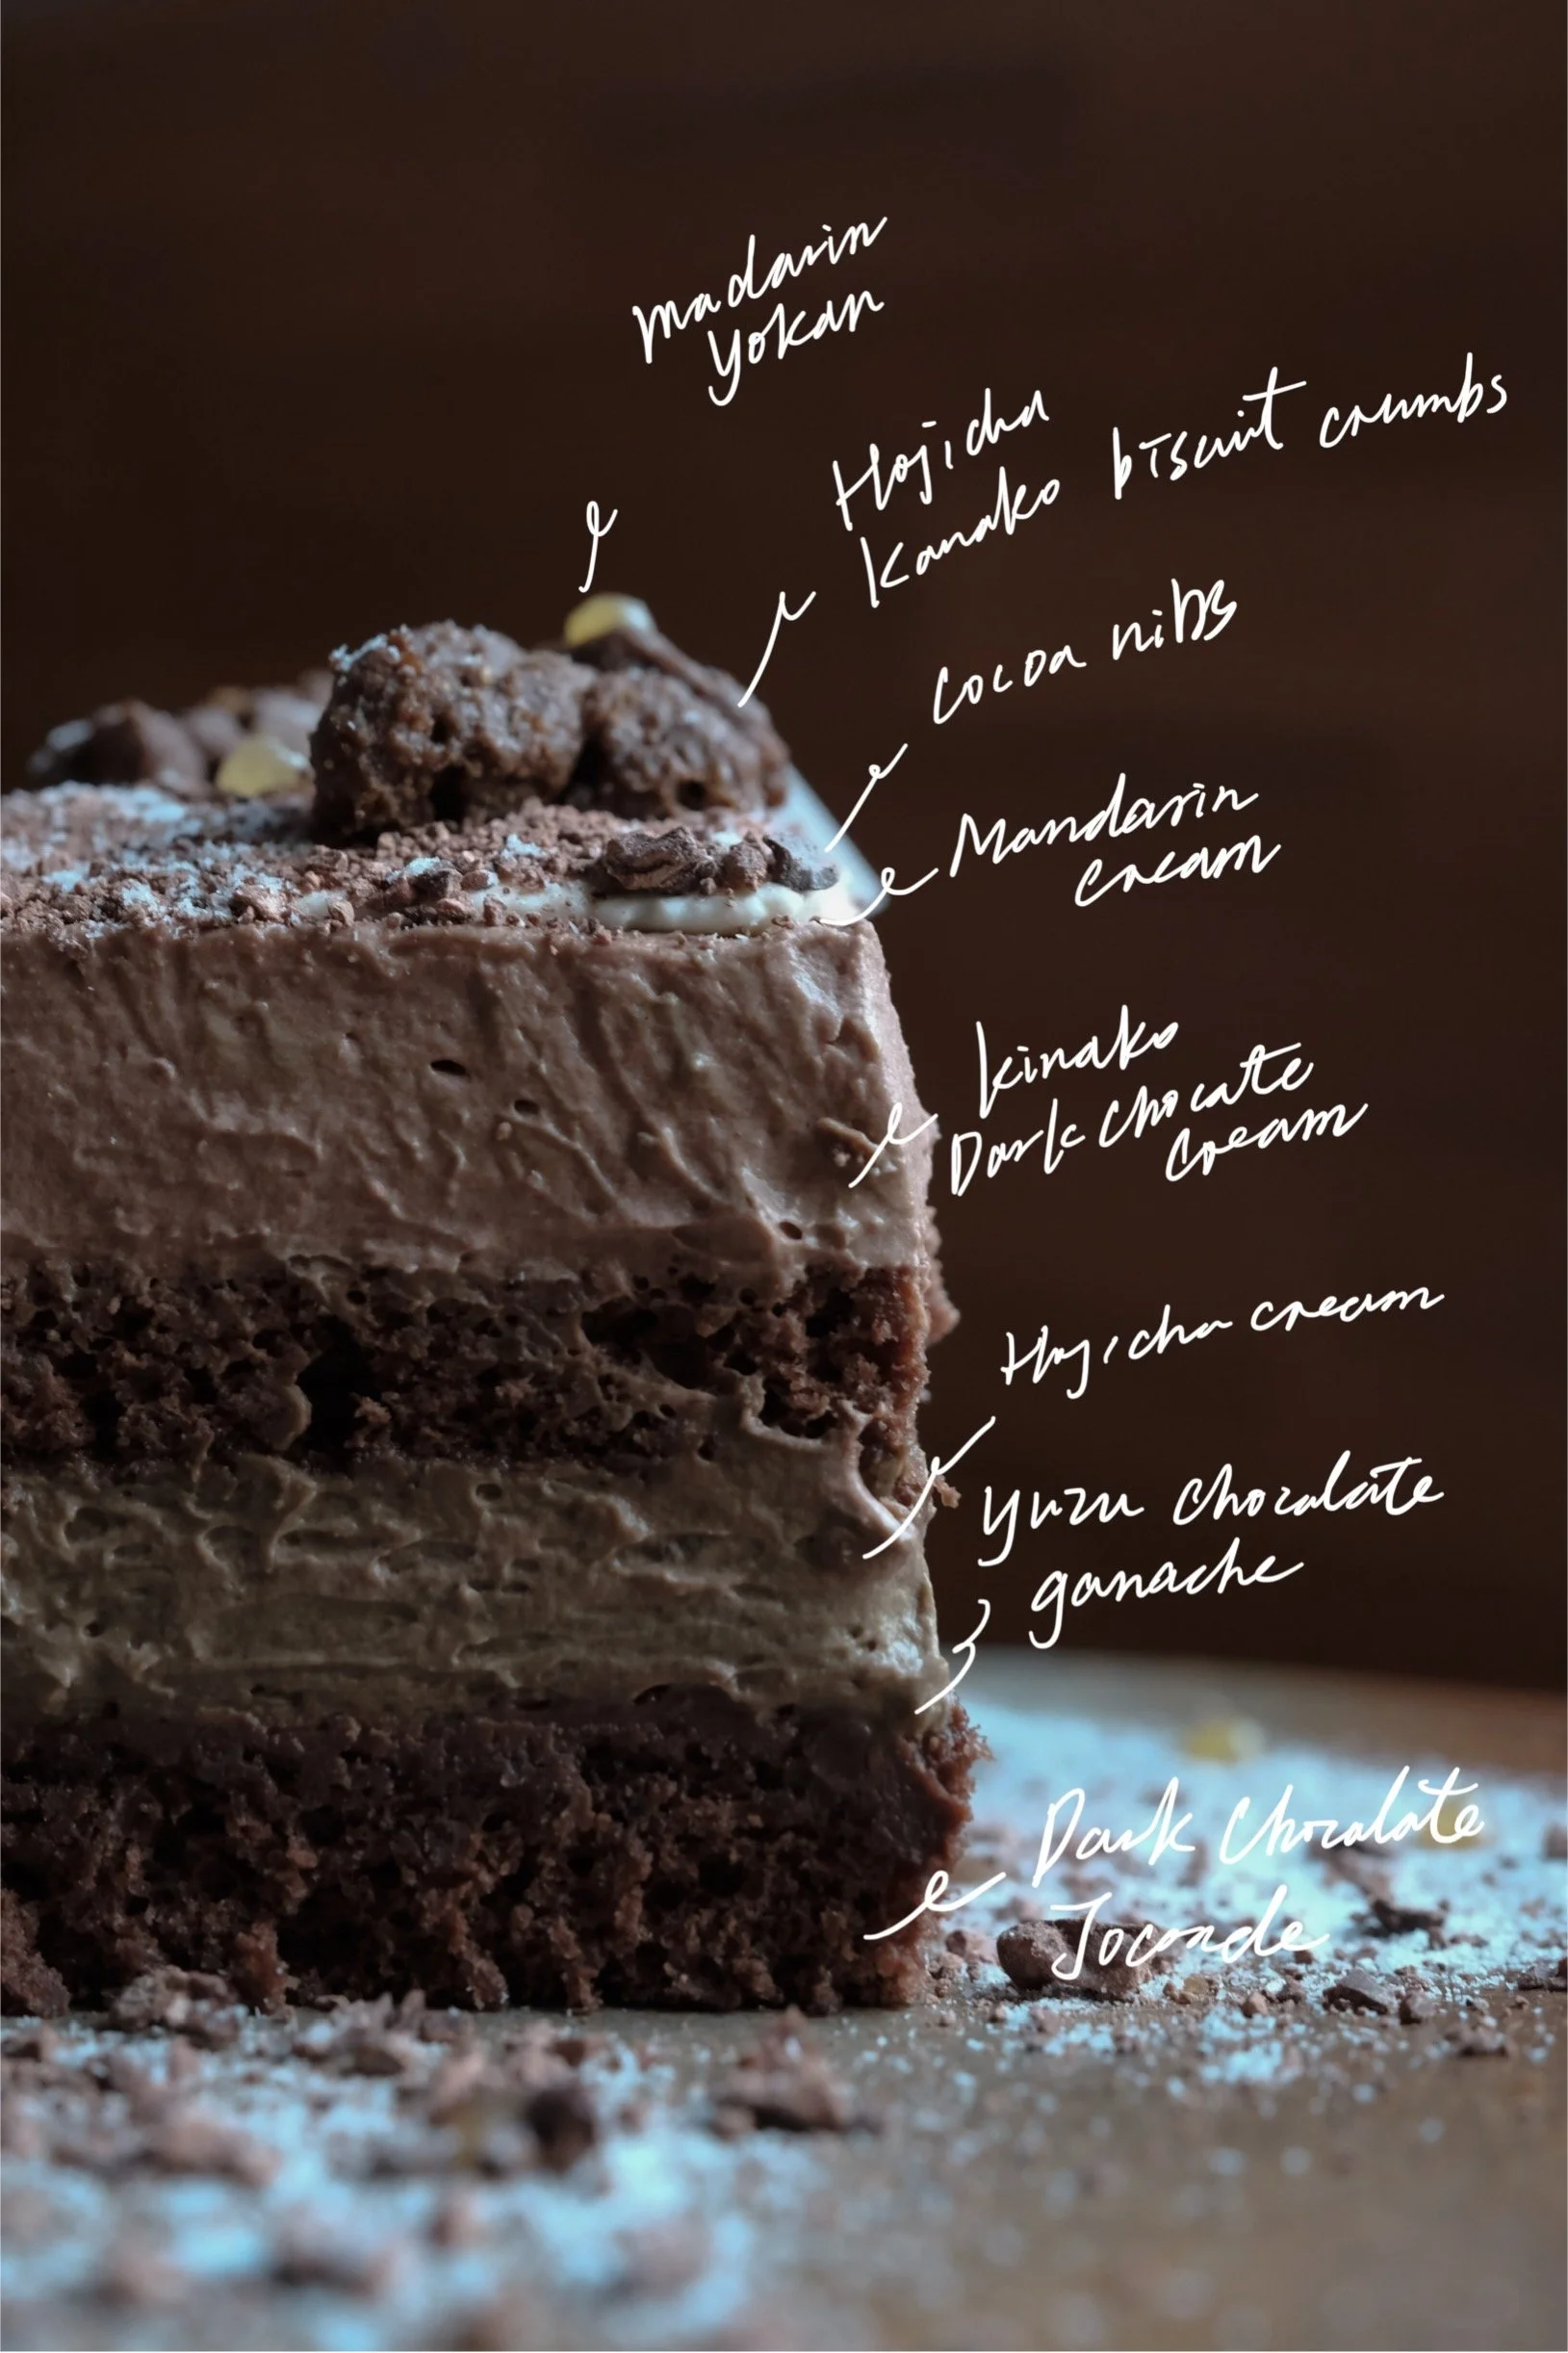 madarin
yokan
Hojicha
Kanako biscuit crumbs
cocoa nibs
Mandarin
cream
kinako
Dark chocate
cream
Hojicha cream
yuzu chocolate
ganache
Dark Chocolate
Joconde